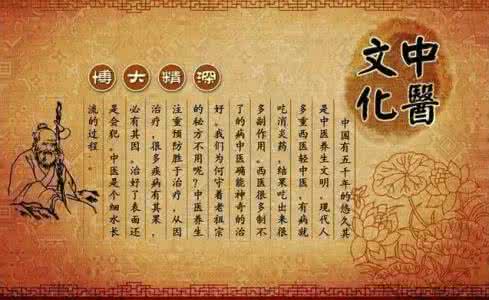 中醫
文化
博大精深
中国有五千年的悠久其
是中医养生文明。现代人
多重西医轻中医，有病就
吃消炎药，结果吃出来很
多副作用。西医很多制不
了的病中医确能神奇的治
好。我们为何守着老祖宗
的秘方不用呢？中医养生
注重预防胜于治疗，从因
治疗，很多疾病有其果，
必有其因。治好了表面还
是会犯。中医是个细水长
流的过程。